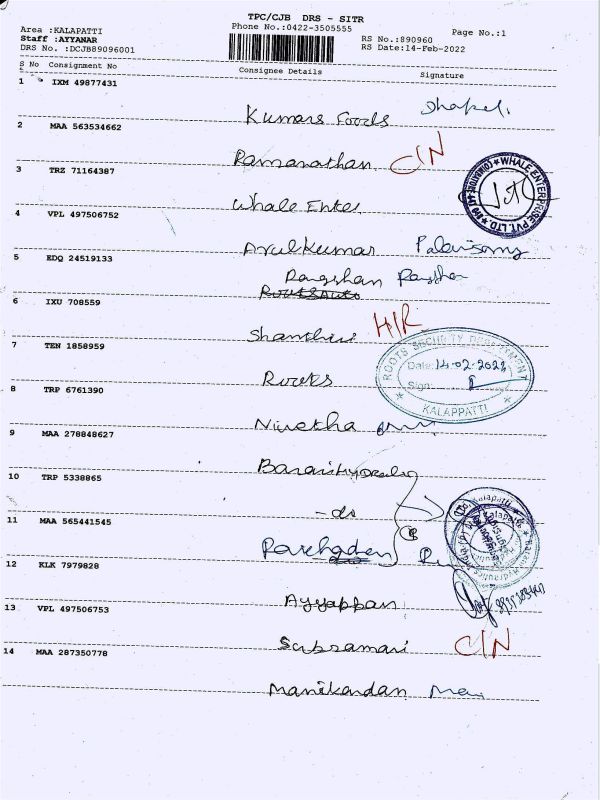 TPC/CJB DRS - SITR
Area :KALAPATTI Phone No.:0422-3505555 Page No.:1
Staff :AYYANAR RS No.:890960
DRS No. :DCJB89096001 RS Date:14-Feb-2022
S No Consignment No Consignee Details Signature
1 IXM 49877431
Kumars Foods
2 MAA 563534662
Ramanathan C/N
3 TRZ 71164387
Whale Enter
WHALE ENTERPRISE PVT. LTD.
4 VPL 497506752
Arulkumar Palanisamy
5 EDQ 24519133
6 IXU 708559
H/R
7 TEN 1858959
Roots
ROOTS SECURITY DEPARTMENT
Date: 14-02-2022
Sign:
KALAPPATTI
8 TRP 6761390
Nivetha
9 MAA 278848627
10 TRP 5338865
- do
11 MAA 565441545
12 KLK 7979828
Ayyappan
13 VPL 497506753
C/N
14 MAA 287350778
Manikandan